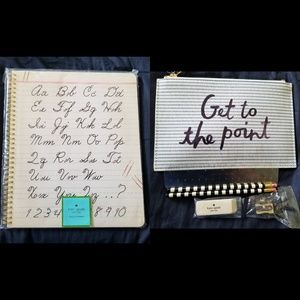 Aa Bb Cc Dd
Ee Ff Gg Hh
Ii Jj Kk Ll
Mm Nn Oo Pp
Qq Rr Ss Tt
Uu Vv Ww
Xx Yy Zz ..?
1 2 3 4 8 9 10
kate spade
Get to
the point